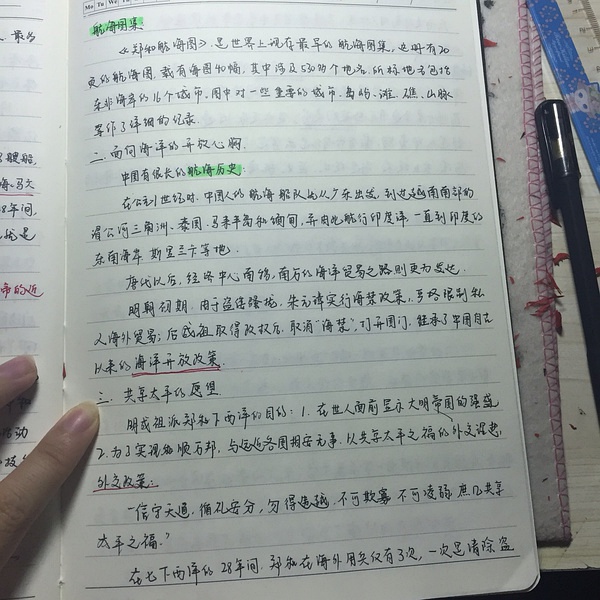 Mo Tu We Th Fr
航海图集
《郑和航海图》是世界上现存最早的航海图集，这册有20
页的航海图，载有每图40幅，其中涉及530多个地名，所标地名包括
东非海岸的16个城市，图中对一些重要的城市、岛屿、滩、礁、山脉
等作了详细的纪录．
二．面向海洋的开放心胸．
中国有很长的航海历史：
在公元1世纪时，中国人的航海船队也从广东出发，到达越南南部的
湄公河三角洲、泰国、马来半岛和缅甸，并由此航行印度洋，一直到印度的
东南海岸，斯里兰卡等地．
唐代以后，经济中心南移，南方的海洋贸易之路则更为发达．
明朝初期，由于盗寇骚扰，朱元璋实行海禁政策，严格限制私
人海外贸易；后成祖取得政权后，取消“海禁”，打开国门，继承了中国自古
以来的海洋开放政策．
三．共享太平的愿望
明成祖派郑和下西洋的目的：1．在世人面前显示大明帝国的强盛
2．为了实现和顺万邦，与远近各国相安无事，以共享太平之福的外交理想．
外交政策：
“信守天道，循礼安分，勿得违越，不可欺寡，不可凌弱，庶几共享
太平之福．”
在七下西洋的28年间，郑和在海外用兵仅有3次，一次是清除盗
最为
艘船
28年间，
帝的近
活动